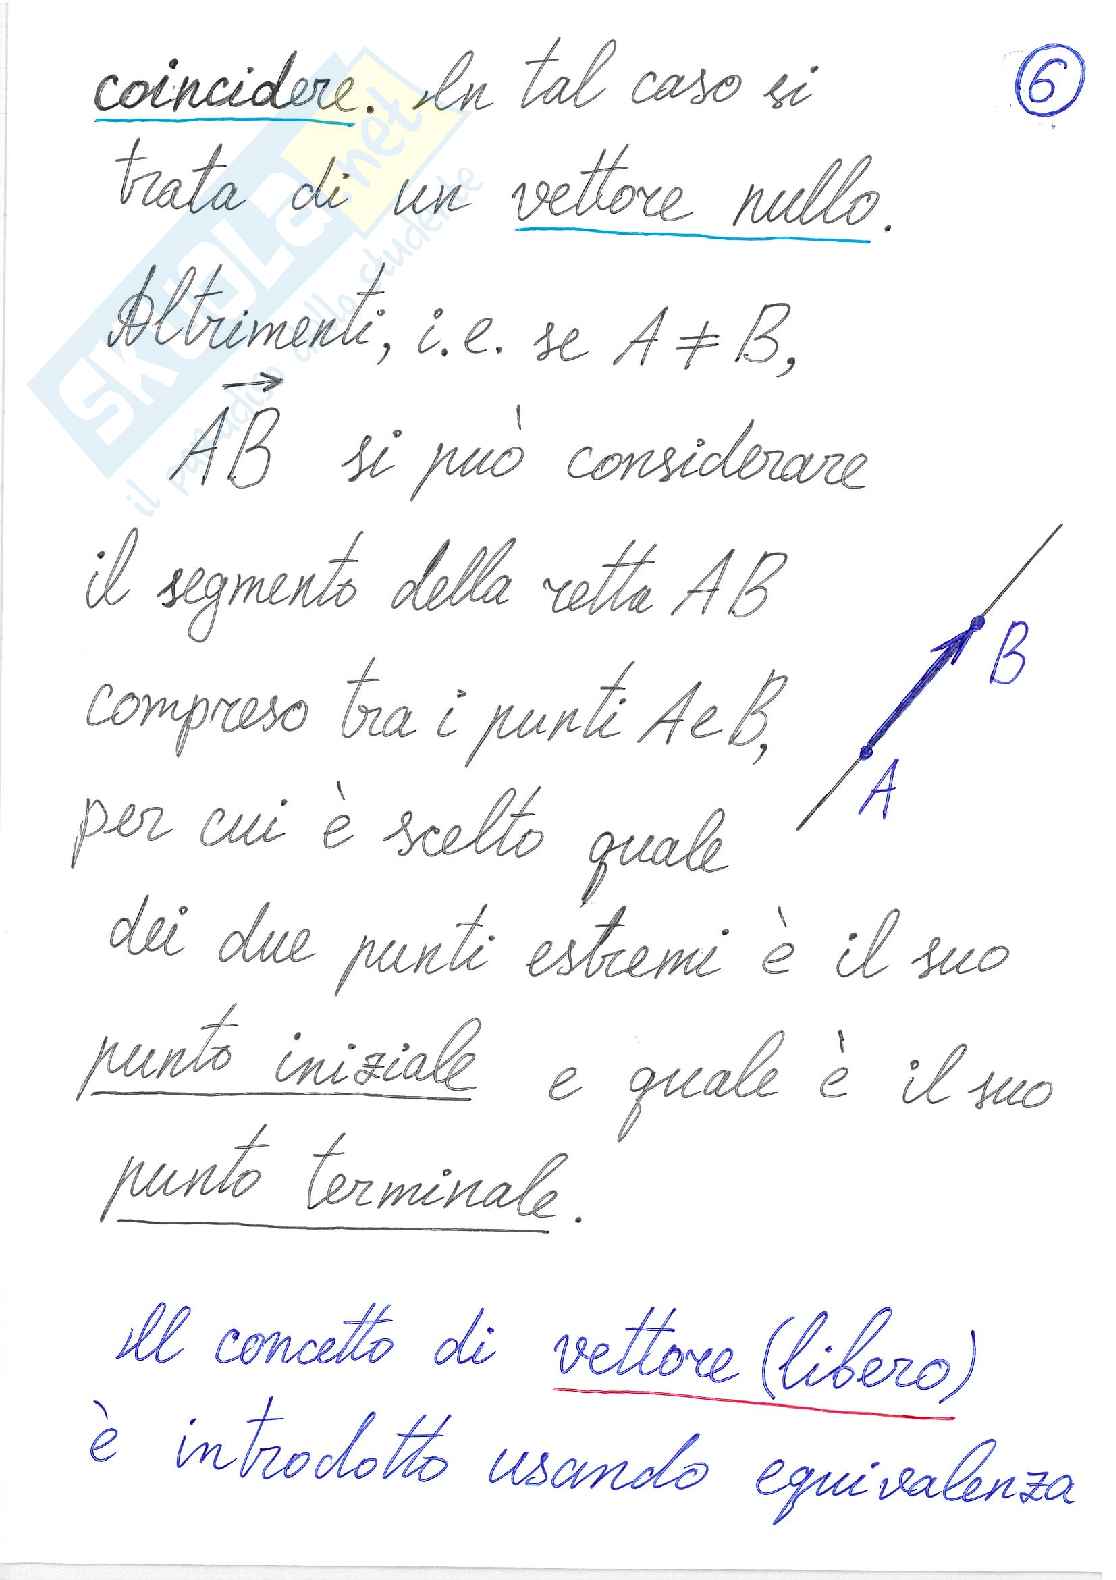 coincidere. In tal caso si
6
trata di un vettore nullo.
Altrimenti, i.e. se A ≠ B,
→
AB si può considerare
il segmento della retta AB
compreso tra i punti A e B,
B
A
per cui è scelto quale
dei due punti estremi è il suo
punto iniziale e quale è il suo
punto terminale.
Il concetto di vettore (libero)
è introdotto usando equivalenza
SKUOLa.net
il paradiso dello studente